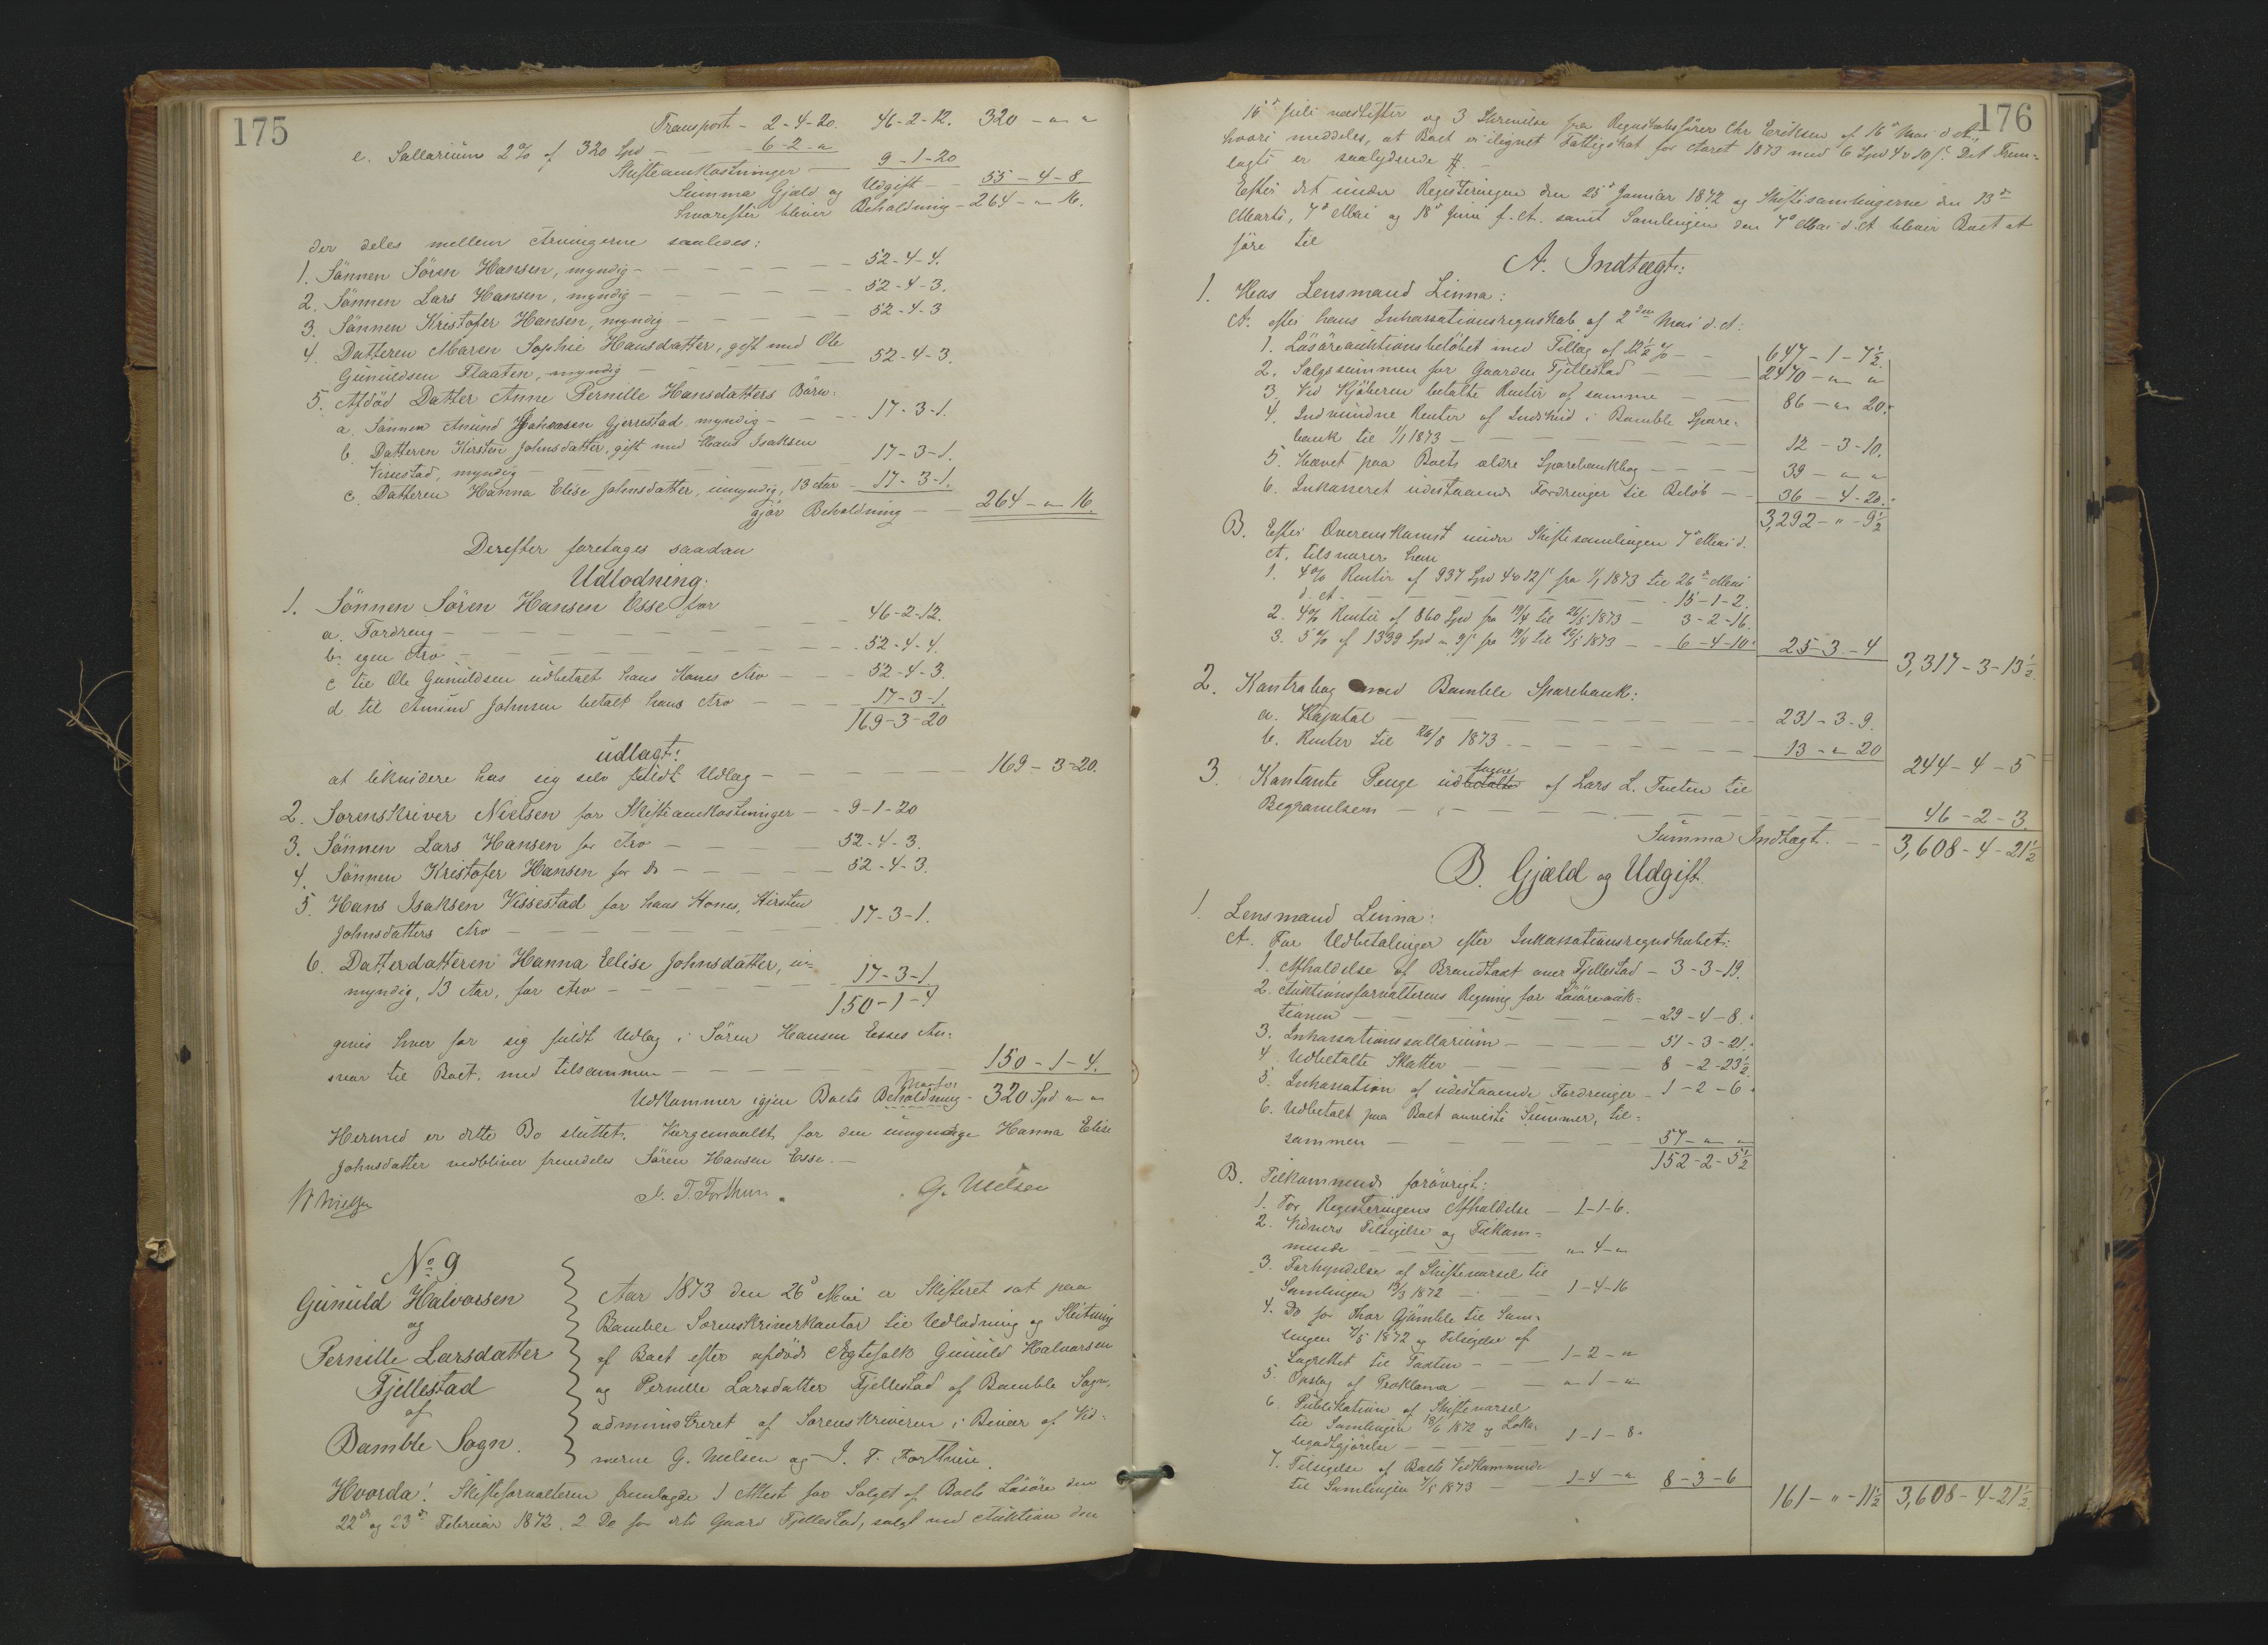 175
Transport - 2-4-20. 46-2-12. 320 - " "
e. Sallarium 2% af 320 Spd - 6-2-"
Skifteomkostninger - 9-1-20
Summa Gjæld og Udgift - 55-4-8
hvorefter bliver Beholdning - 264-"-16.
der deles mellem Arvingerne saaledes:
1. Sönnen Sören Hansen, myndig - 52-4-4.
2. Sönnen Lars Hansen, myndig - 52-4-3.
3. Sönnen Kristofer Hansen, myndig - 52-4-3
4. Datteren Maren Sophie Hansdatter, gift med Ole
Gunuldsen Flaaten, myndig - 52-4-3.
5. Afdöd Datter Anne Pernille Hansdatters Börn:
a. Sönnen Amund Johnsen Gjerrestad myndig - 17-3-1.
b. Datteren Kirsten Johnsdatter, gift med Hans Isaksen
Vissestad, myndig - 17-3-1.
c. Datteren Hanna Elise Johnsdatter, umyndig, 13 Aar - 17-3-1.
gjör Beholdning - 264-"-16.
Derefter foretages saadan
Udlodning:
1. Sönnen Sören Hansen Esse for
a. Fordring - 46-2-12.
b. egen Arv - 52-4-4.
c. til Ole Gunuldsen udbetalt hans Kones Arv - 52-4-3.
d. til Amund Johnsen betalt hans Arv - 17-3-1.
169-3-20
udlagt:
at likvidere hos sig selv fuldt Udlæg - 169-3-20.
2. Sorenskriver Nielsen for Skifteomkostninger - 9-1-20
3. Sönnen Lars Hansen for Arv - 52-4-3.
4. Sönnen Kristofer Hansen for Do - 52-4-3.
5. Hans Isaksen Vissestad for hans Kones, Kirsten
Johnsdatters Arv - 17-3-1.
6. Datterdatteren Hanna Elise Johnsdatter, u=
myndig, 13 Aar, for Arv - 17-3-1
150-1-4
gives hver for sig fuldt Udlæg i Sören Hansen Esses An-
svar til Boet, med tilsammen - 150-1-4.
Udkommer igjen Boets Beholdning - 320 Spd " "
Hermed er dette Bo sluttet. Værgemaalet for den umyndige Hanna Elise
Johnsdatter vedbliver fremdeles Sören Hansen Esse. -
J. T. Forthun. G. Nielsen
No 9
Gunuld Halvorsen
og
Pernille Larsdatter
Fjellestad
af
Bamble Sogn.
Aar 1873 den 26de Mai er Skifteret sat paa
Bamble Sorenskriverkontor til Udlodning og Slutning
af Boet efter afdöde Ægtefolk Gunuld Halvorsen
og Pernille Larsdatter Fjellestad af Bamble Sogn,
administreret af Sorenskriveren i Bivær af Vid-
nerne G. Nielsen og J. T. Forthun.
Hvorda: Skifteforvalteren fremlagde 1 Attest for Salget af Boets Lösöre den
22de og 23de Februar 1872. 2 Do for dets Gaard Fjellestad, solgt ved Auktion den
176
16de Juli næstefter og 3 Skrivelse fra Regnskabsförer Chr Eriksen af 16de Mai d. A.,
hvori meddeles, at Boet er ilignet Fattigskat for Aaret 1873 med 6 Spd 4 v 10 s. Det Frem=
lagte er saalydende #. -
Efter det under Registeringen den 25de Januar 1872 og Skiftesamlingerne den 13de
Marts, 7de Mai og 18de Juni f. A. samt Samlingen den 7de Mai d. A. bliver Boet at
före til
A. Indtægt:
1. Hos Lensmand Linna:
A. efter hans Inkassationsregnskab af 2den Mai d. A:
1. Lösöreauktionsbelöbet med Tillæg af 12½ % - 647-1-7½.
2. Salgssummen for Gaarden Fjellestad - 2470-"-"
3. Ved Kjöberen betalte Renter af samme - 86-"-20.
4. Indvundne Renter af Indskud i Bamble Spare-
bank til 1/1 1873 - 12-3-10.
5. Hævet paa Boets ældre Sparebankbog - 39-"-"
6. Inkasseret udestaaende Fordringer til Belöb - 36-4-20.
3,292-"-9½
B. Efter Overenskomst under Skiftesamlingen 7de Mai d.
A. tilsvarer han
1. 4% Renter af 937 Spd 4 v 12 s fra 1/1 1873 til 26de Mai
d. A. - 15-1-2.
2. 4% Renter af 860 Spd fra 19/4 til 26/5 1873 - 3-2-16.
3. 5% af 1339 Spd " 9 s fra 19/4 til 26/5 1873 - 6-4-10. 25-3-4 3,317-3-13½.
2. Kontrabog med Bamble Sparebank:
a. Kapital - 231-3-9.
b. Renter til 26/5 1873 - 13-"-20 244-4-5
3. Kontante Penge udbetalte tagne af Lars L. Tveten til
Begravelsen - 46-2-3.
Summa Indtægt. - 3,608-4-21½
B. Gjæld og Udgift.
1. Lensmand Linna:
A. For Udbetalinger efter Inkassationsregnskabet:
1. Afholdelse af Brandtaxt over Fjellestad - 3-3-19.
2. Auktionsforvalterens Regning for Lösöreauk=
tionen - 29-4-8.
3. Inkassationssallarium - 51-3-21.
4. Udbetalte Skatter - 8-2-23½.
5. Inkassation af udestaaende Fordringer - 1-2-6.
6. Udbetalt paa Boet anviste Summer, til=
sammen - 57-"-"
152-2-5½
B. Tilkommende forövrigt:
1. For Registeringens Afholdelse - 1-1-6.
2. Vidners Tilsigelse og Tilkom=
mende - "-4-"
3. Forkyndelse af Skiftevarsel til
Samlingen 13/3 1872 - 1-4-16
4. Do for Thor Gjömle til Sam=
lingen 7/5 1872 og Tilsigelse af
Lagrettet til Taxten - 1-2-"
5. Opslag af Proklama - "-1-"
6. Publikation af Skiftevarsel
til Samlingen 18/6 1872 og
1-1-8.
7. Tilsigelse af Boets Vedkommende
til Samlingen 7/5 1873 - 1-4-" 8-3-6 161-"-11½ 3,608-4-21½.